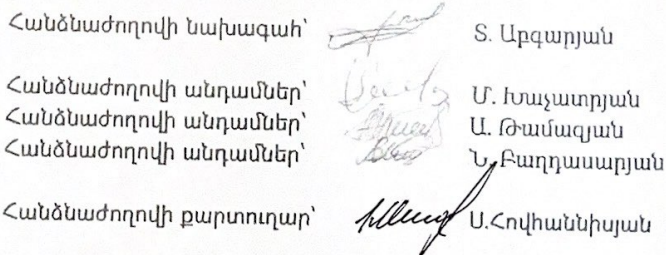 Հանձնաժողովի նախագահ՝ Տ. Աբգարյան
Հանձնաժողովի անդամներ՝ Մ. Խաչատրյան
Հանձնաժողովի անդամներ՝ Ա. Թամազյան
Հանձնաժողովի անդամներ՝ Ն. Բաղդասարյան
Հանձնաժողովի քարտուղար՝ Ս.Հովհաննիսյան